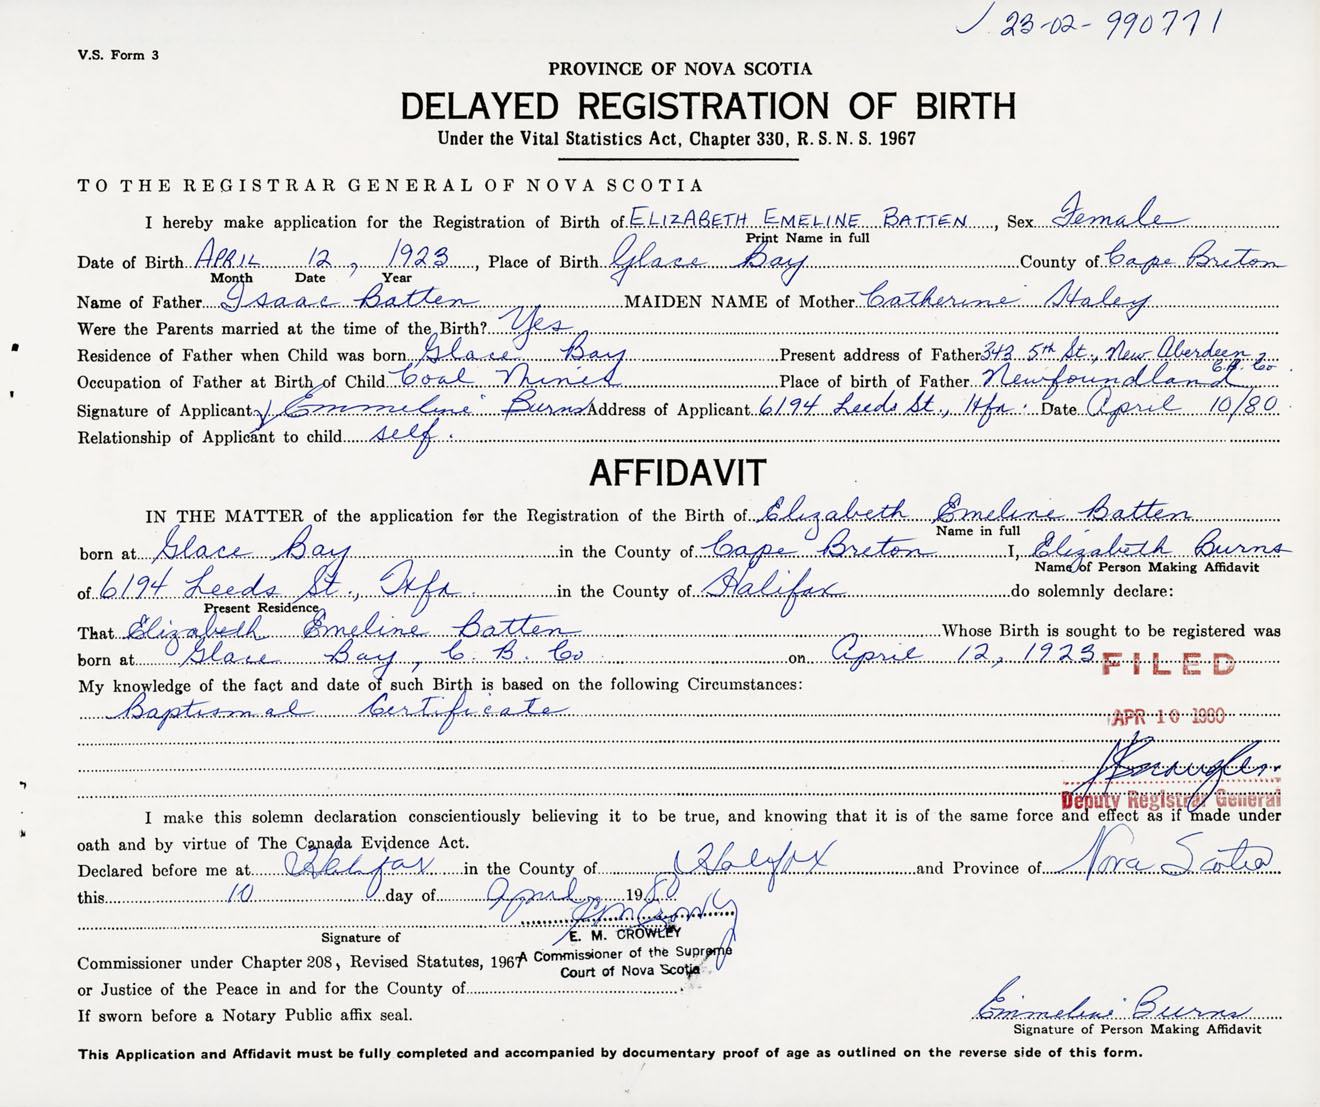 23-02-990771
V.S. Form 3
PROVINCE OF NOVA SCOTIA
DELAYED REGISTRATION OF BIRTH
Under the Vital Statistics Act, Chapter 330, R. S. N. S. 1967
TO THE REGISTRAR GENERAL OF NOVA SCOTIA
I hereby make application for the Registration of Birth of ELIZABETH EMELINE BATTEN, Sex Female
Print Name in full
Date of Birth APRIL 12, 1923, Place of Birth Glace Bay County of Cape Breton
Month Date Year
Name of Father Isaac Batten MAIDEN NAME of Mother Catherine Haley
Were the Parents married at the time of the Birth? Yes
Residence of Father when Child was born Glace Bay Present address of Father 343 5th St., New Aberdeen
Occupation of Father at Birth of Child Coal Place of birth of Father Newfoundland
Signature of Applicant Emmeline Burns Address of Applicant 6194 Leeds St., Hfx. Date April 10/80
Relationship of Applicant to child self.
AFFIDAVIT
IN THE MATTER of the application for the Registration of the Birth of Elizabeth Emeline Batten
Name in full
born at Glace Bay in the County of Cape Breton I, Elizabeth Burns
Name of Person Making Affidavit
of 6194 Leeds St., Hfx. in the County of Halifax do solemnly declare:
Present Residence
That Elizabeth Emeline Batten Whose Birth is sought to be registered was
born at Glace Bay, C. B. Co on April 12, 1923
FILED
My knowledge of the fact and date of such Birth is based on the following Circumstances:
Baptismal Certificate
APR 10 1980
Deputy Registrar General
I make this solemn declaration conscientiously believing it to be true, and knowing that it is of the same force and effect as if made under
oath and by virtue of The Canada Evidence Act.
Declared before me at Halifax in the County of Halifax and Province of Nova Scotia
this 10 day of April 1980
E. M. CROWLEY
Signature of
A Commissioner of the Supreme
Commissioner under Chapter 208, Revised Statutes, 1967
Court of Nova Scotia
or Justice of the Peace in and for the County of
If sworn before a Notary Public affix seal.
Emmeline Burns
Signature of Person Making Affidavit
This Application and Affidavit must be fully completed and accompanied by documentary proof of age as outlined on the reverse side of this form.